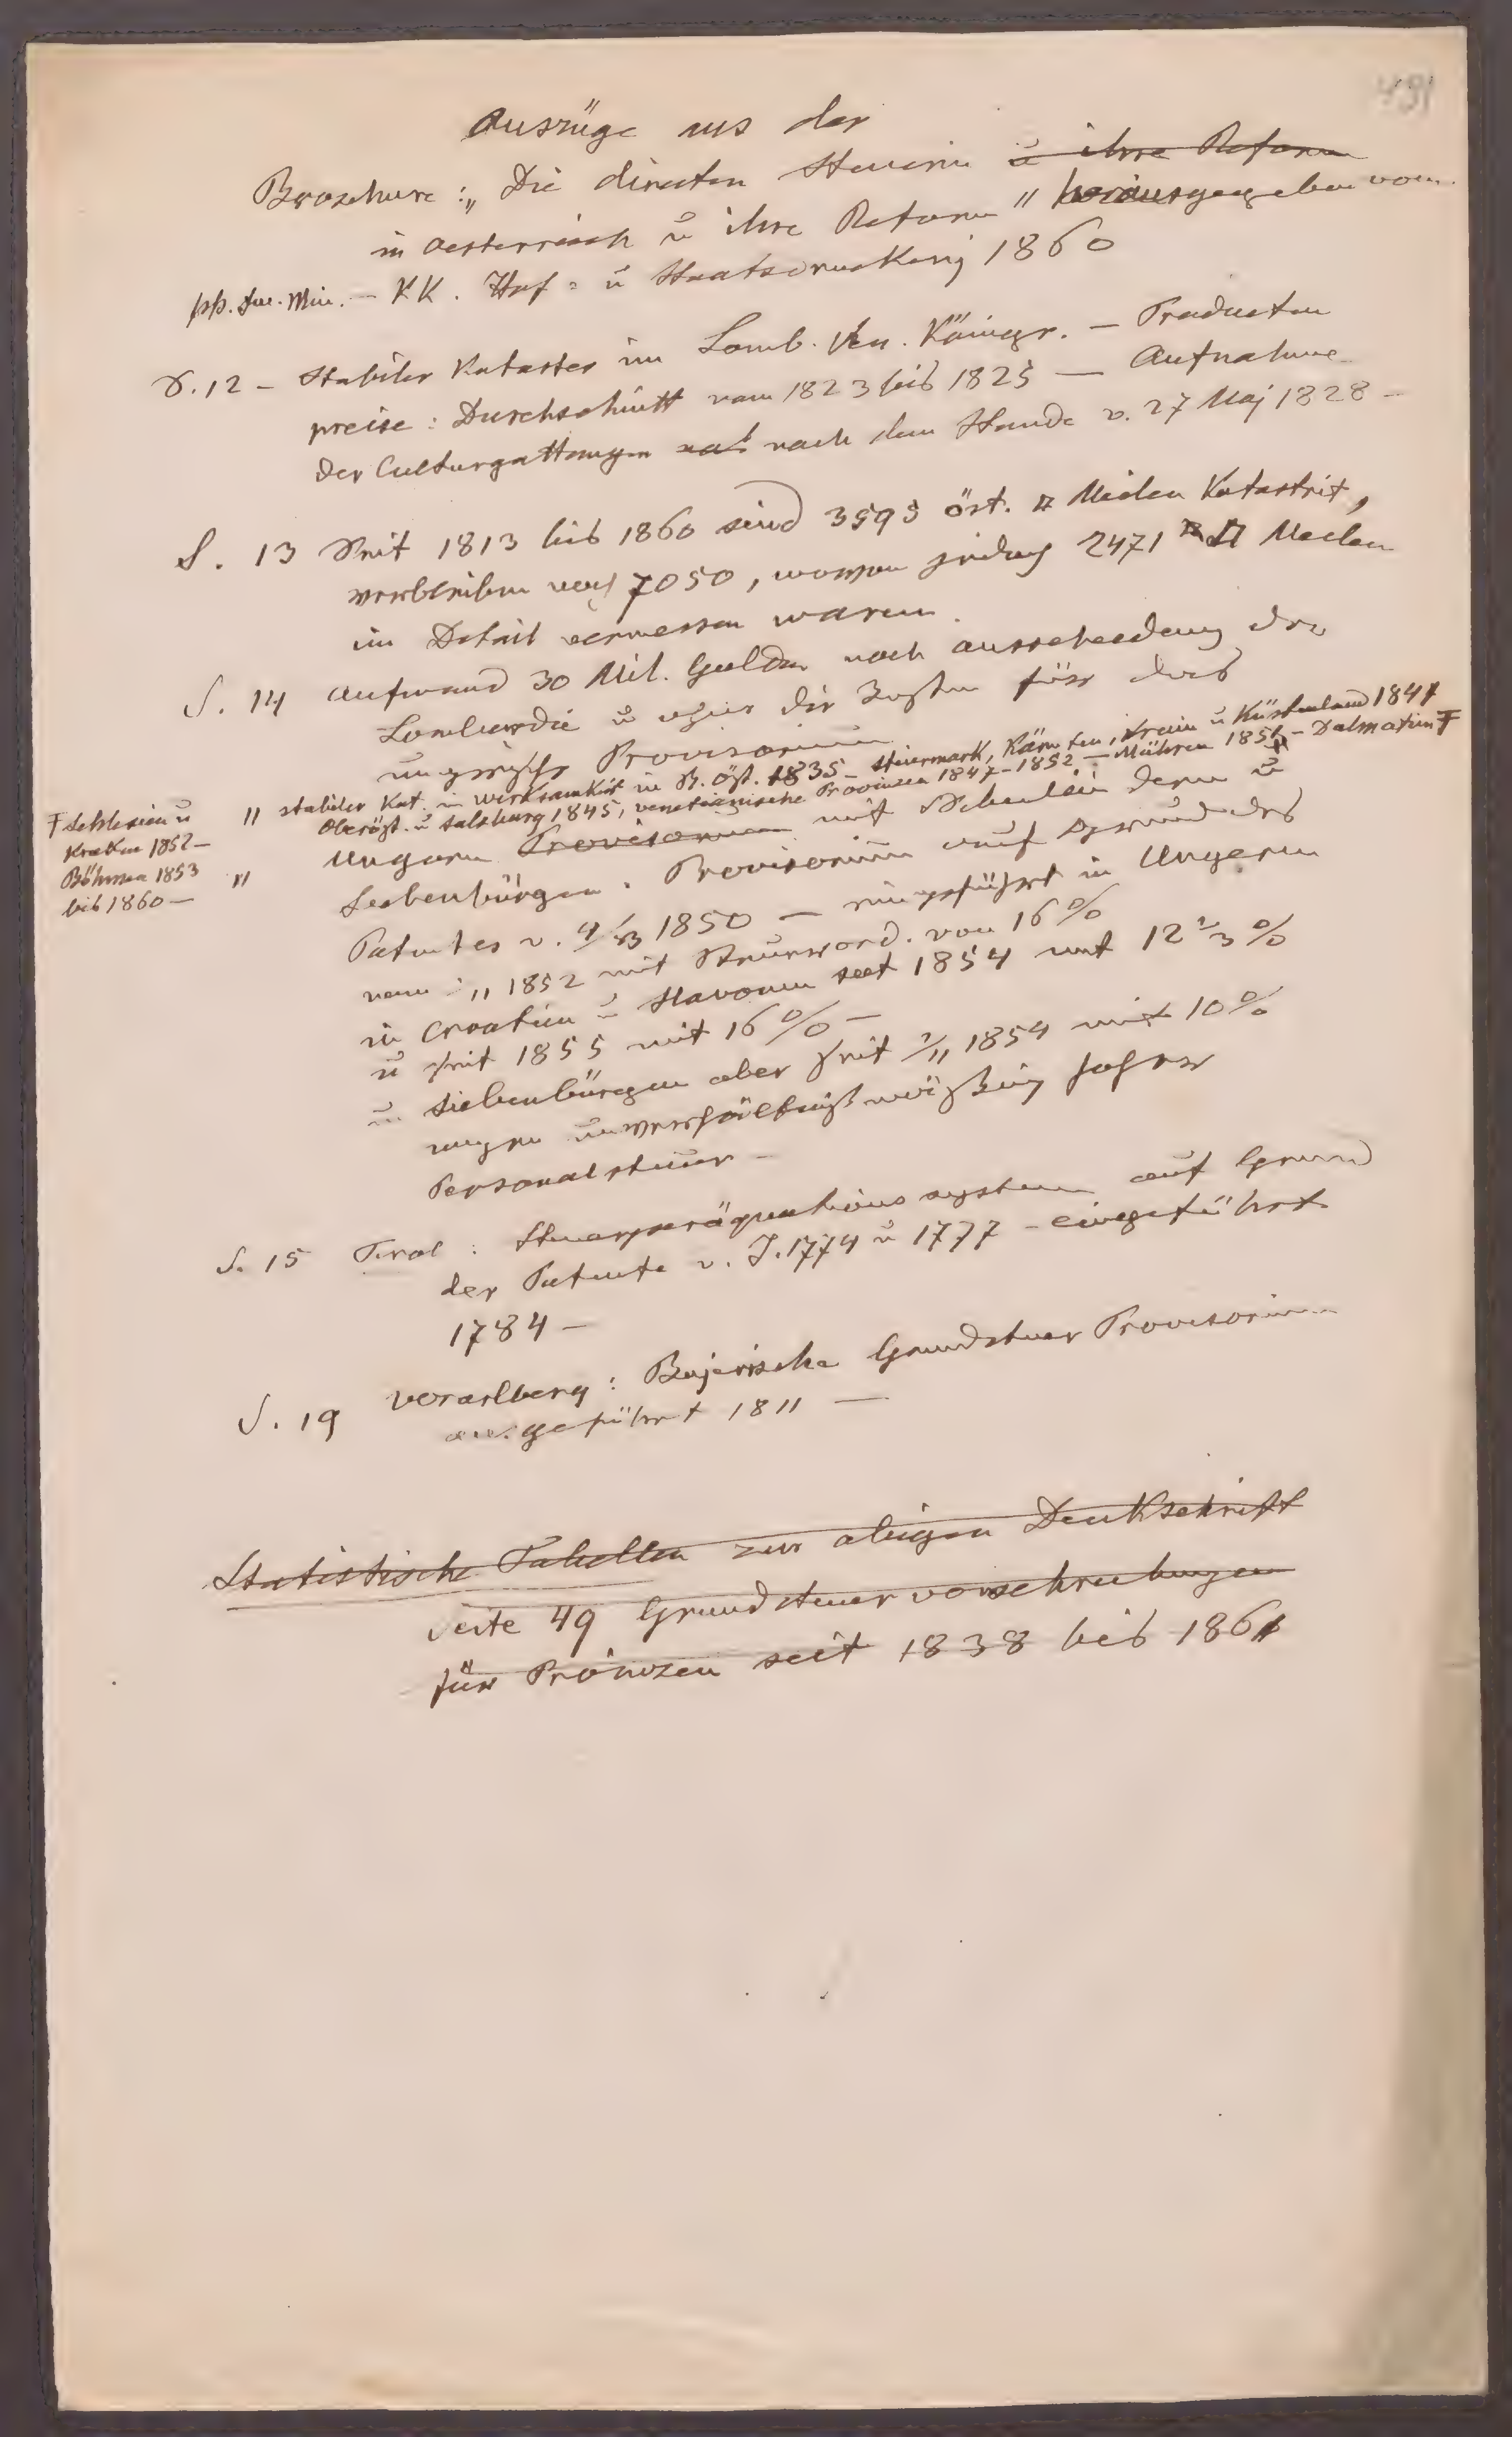 491
Auszüge aus der
Broschure: „Die directen Steuern ~~u ihre Reform~~
in Oesterreich u ihre Reform" herausgegeben vom
pp. Fin. Min. – KK. Hof- u Staatsdruckerej 1860
S. 12 – Stabiler Kataster im Lomb. Ven. Königr. – Producten
preise: Durchschnitt vom 1823 bis 1825 — Aufnahme
der Culturgattungen nach dem Stande v. 27 Maj 1828 –
S. 13 Seit 1813 bis 1860 sind 3595 öst. □ Meilen Katastrit,
verbleiben noch 7050, wovon jedoch 2471 □ Meilen
im Detail vermessen waren.
S. 14 Aufwand 30 Mil. Gulden nach ausscheidung der
Lombardie u ohne die Kosten für das
ungrische Provisorium
" stabiler Kat. in Wirksamkeit in N. Öst. 1835 – Steiermark, Kärnten, Krain u Küstenland 1844
Oberöst. u Salzburg 1845, venetianische Provinzen 1847–1852 – Mähren 1851 – Dalmatien Ŧ
Ŧ Schlesien u
Krakau 1852 –
Böhmen 1853
bis 1860 –
" Ungarn ~~Provisorium~~ mit Nebenländern u
Siebenbürgen. Provisorium auf Grund des
Patentes v. 4/3 1850 — eingeführt in Ungern
vom /11 1852 mit Steuerord. von 16 %
in Croatien u Slavonien seit 1854 mit 12 2/3 %
u seit 1855 mit 16 % –
in Siebenbürgen aber seit 1/11 1854 mit 10 %
wegen unverhältnißmäßig hoher
Personalsteuer –
S. 15 Tirol: Steuerperäquationssystem auf Grund
der Patente v. J. 1774 u 1777 – eingeführt
1784 –
S. 19 Vorarlberg: Bajerische Grundsteuer Provisorium
eingeführt 1811 —
~~Statistische Tabellen zur obigen Denkschrift~~
Seite 49 ~~Grundsteuervorschreibungen~~
für Provinzen seit 1838 bis 1861